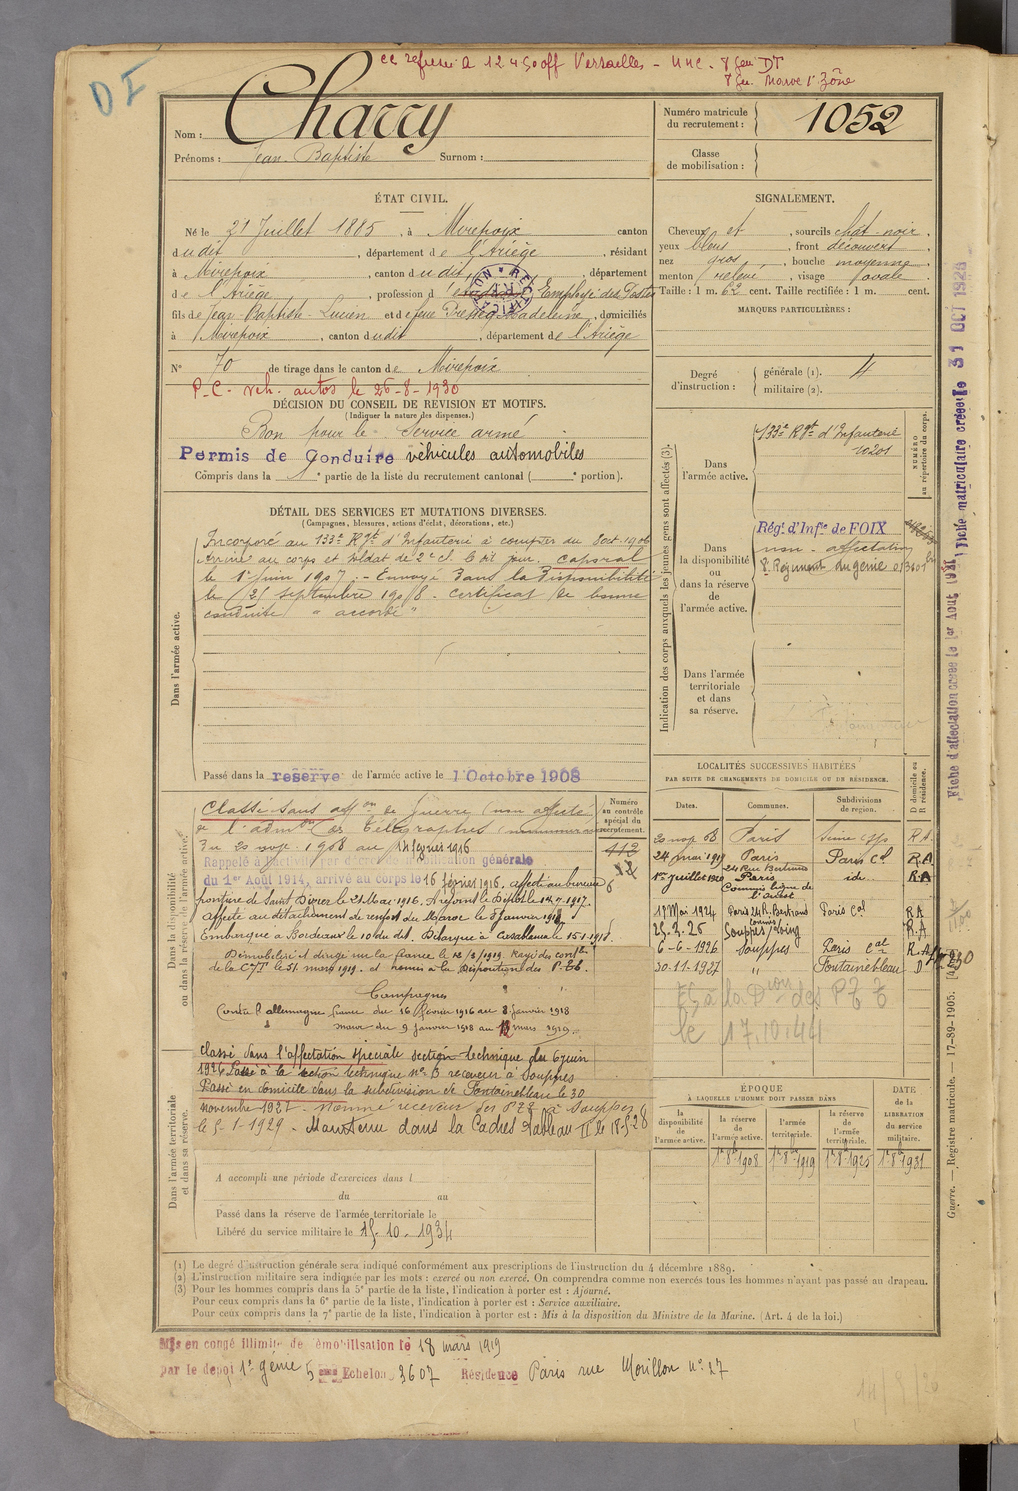 DI
Nom : Charry
Prénoms : Jean-Baptiste Surnom :
Numéro matricule du recrutement : 1052
Classe de mobilisation :
ÉTAT CIVIL.
Né le 21 Juillet 1885, à Mirepoix canton
dudit, département de l'Ariège, résidant
à Mirepoix, canton dudit, département
de l'Ariège, profession d' Employé des Postes
fils de Jean Baptiste Lucien et de feue Madeleine, domiciliés
à Mirepoix, canton dudit, département de l'Ariège
N° 70 de tirage dans le canton de Mirepoix
P.C. veh. autos le 26-8-1930
SIGNALEMENT.
Cheveux et, sourcils chat-noir.
yeux bleus, front découvert
nez gros, bouche moyenne
menton relevé, visage ovale
Taille : 1 m. 62 cent. Taille rectifiée : 1 m. cent.
MARQUES PARTICULIÈRES :
Degré d'instruction : générale (1). 4
militaire (2).
DÉCISION DU CONSEIL DE REVISION ET MOTIFS.
(Indiquer la nature des dispenses.)
Bon pour le Service armé
Permis de Conduire véhicules automobiles
Compris dans la 1e partie de la liste du recrutement cantonal ( portion).
DÉTAIL DES SERVICES ET MUTATIONS DIVERSES.
(Campagnes, blessures, actions d'éclat, décorations, etc.)
Dans l'armée active.
Incorporé au 133e Rgt d'Infanterie à compter du 8 oct. 1906
Arrivé au corps et soldat de 2e cl. le dit jour. caporal
le 1er juin 1907. - Envoyé dans la disponibilité
le 25 septembre 1908. certificat de bonne
conduite "accordé"
Passé dans la réserve de l'armée active le 1 Octobre 1908
Indication des corps auxquels les jeunes gens sont affectés (3).
NUMÉRO au répertoire du corps.
Dans l'armée active.
133e Rgt d'Infanterie
10201
Dans la disponibilité ou dans la réserve de l'armée active.
Régt d'Infie de FOIX
non-affectation
8e Régiment du génie
Dans l'armée territoriale et dans sa réserve.
Dans la disponibilité ou dans la réserve de l'armée active.
Numéro au contrôle spécial du recrutement.
Classé sans affon de guerre (non affecté
de l'admon des télégraphes
du 20 novb 1908 au 14 février 1916
Rappelé à l'activité par décret de mobilisation générale
du 1er Août 1914, arrivé au corps le 16 février 1916. affecté au bureau
Affecté au détachement de renfort du Maroc le 3 janvier 1918
Embarqué à Bordeaux le 10 du dit. Débarqué à Casablanca le 15-1-1918.
Démobilisé et dirigé sur la france le 12/3/1919. Rayé des contles
de la CTT le 31 mars 1919. et remis à la disposition des P.T.T.
Campagnes
Contre l'allemagne france du 16 février 1916 au 8 janvier 1918
maroc du 9 janvier 1918 au 12 mars 1919.
Classé dans l'affectation spéciale section technique du 6 juin
1926. Passé à la section technique n° 3 receveur à Souppes
Passé en domicile dans la subdivision de Fontainebleau le 30
novembre 1927 - Nommé receveur des PTT à Souppes
le 5-1-1929 - Maintenu dans la Cadres Tableau II le 18-5-28
LOCALITÉS SUCCESSIVES HABITÉES
PAR SUITE DE CHANGEMENTS DE DOMICILE OU DE RÉSIDENCE.
Dates. Communes. Subdivisions de région. D domicile ou R résidence.
20 nov 08 Paris Seine R.A
24 mai 1919 Paris Paris Cal R.A
24 Rue Bertrand
1er Juillet 1920 Paris id R.A
Commis Ligne de l'Ouest
17 Mai 1924 Paris 24 R. Bertrand Paris Cal R.A
25-3-26 Souppes s/Loing R.A
6-6-1926 Souppes Paris Cal R.A
30-11-1927 " Fontainebleau D
le 17.10.44
ÉPOQUE
À LAQUELLE L'HOMME DOIT PASSER DANS
la disponibilité de l'armée active.
la réserve de l'armée active.
l'armée territoriale.
la réserve de l'armée territoriale.
DATE de la LIBÉRATION du service militaire.
1er 8bre 1908 1er 8bre 1919 1er 8bre 1925 1er 8bre 1931
Dans l'armée territoriale et dans sa réserve.
A accompli une période d'exercices dans l
du au
Passé dans la réserve de l'armée territoriale le
Libéré du service militaire le 15-10-1934
(1) Le degré d'instruction générale sera indiqué conformément aux prescriptions de l'instruction du 4 décembre 1889.
(2) L'instruction militaire sera indiquée par les mots : exercé ou non exercé. On comprendra comme non exercés tous les hommes n'ayant pas passé au drapeau.
(3) Pour les hommes compris dans la 5e partie de la liste, l'indication à porter est : Ajourné.
Pour ceux compris dans la 6e partie de la liste, l'indication à porter est : Service auxiliaire.
Pour ceux compris dans la 7e partie de la liste, l'indication à porter est : Mis à la disposition du Ministre de la Marine. (Art. 4 de la loi.)
Mis en congé illimité de démobilisation le 18 mars 1919
par le dépôt 1er génie 5 eme Echelon 3607 Résidence Paris rue Morillon n° 27
Fiche d'affectation créée le 1er Août 1921 Fiche matriculaire créée le 31 OCT 1926
Guerre. — Registre matricule. — 17-89-1905.